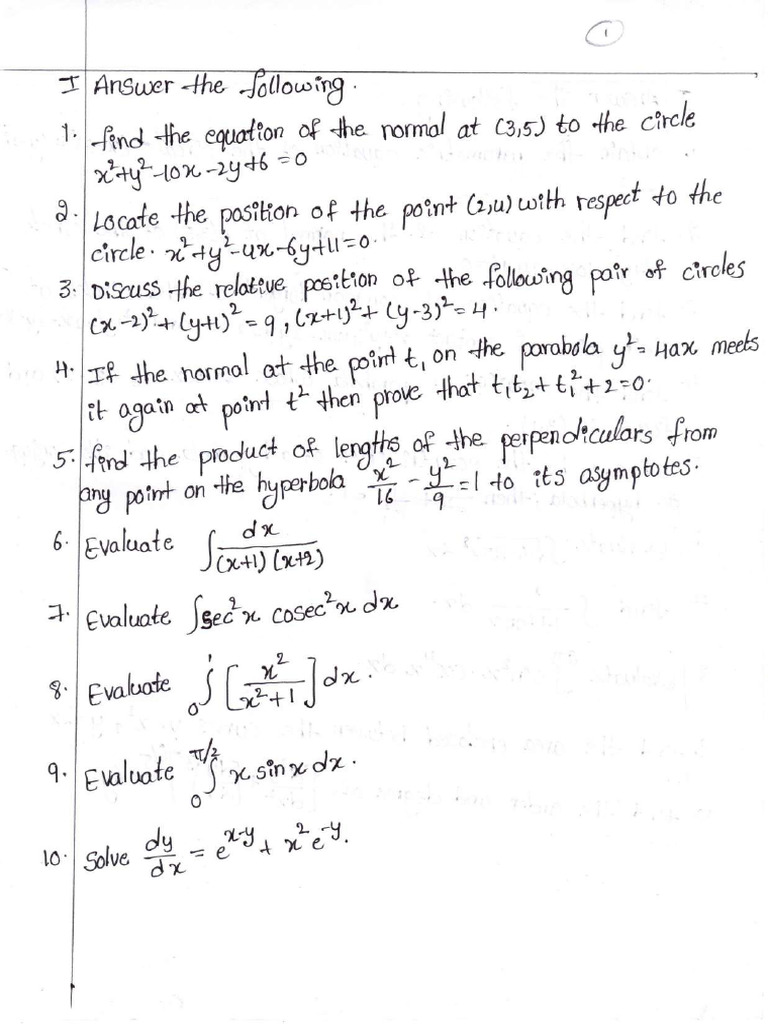 1
I Answer the following.
1. find the equation of the normal at (3,5) to the circle
x²+y²-10x-2y+6=0
2. Locate the position of the point (2,4) with respect to the
circle. x²+y²-4x-6y+11=0.
3. Discuss the relative position of the following pair of circles
(x-2)²+(y+1)²=9, (x+1)²+(y-3)²=4.
4. If the normal at the point t₁ on the parabola y²=4ax meets
it again at point t² then prove that t₁t₂+t₁²+2=0.
5. find the product of lengths of the perpendiculars from
any point on the hyperbola x²/16 - y²/9 = 1 to its asymptotes.
6. Evaluate ∫ dx/(x+1)(x+2)
7. Evaluate ∫sec²x cosec²x dx
8. Evaluate ₀∫¹ [x²/x²+1] dx.
9. Evaluate ₀∫π/2 x sinx dx.
10. Solve dy/dx = e^x-y + x²e^-y.